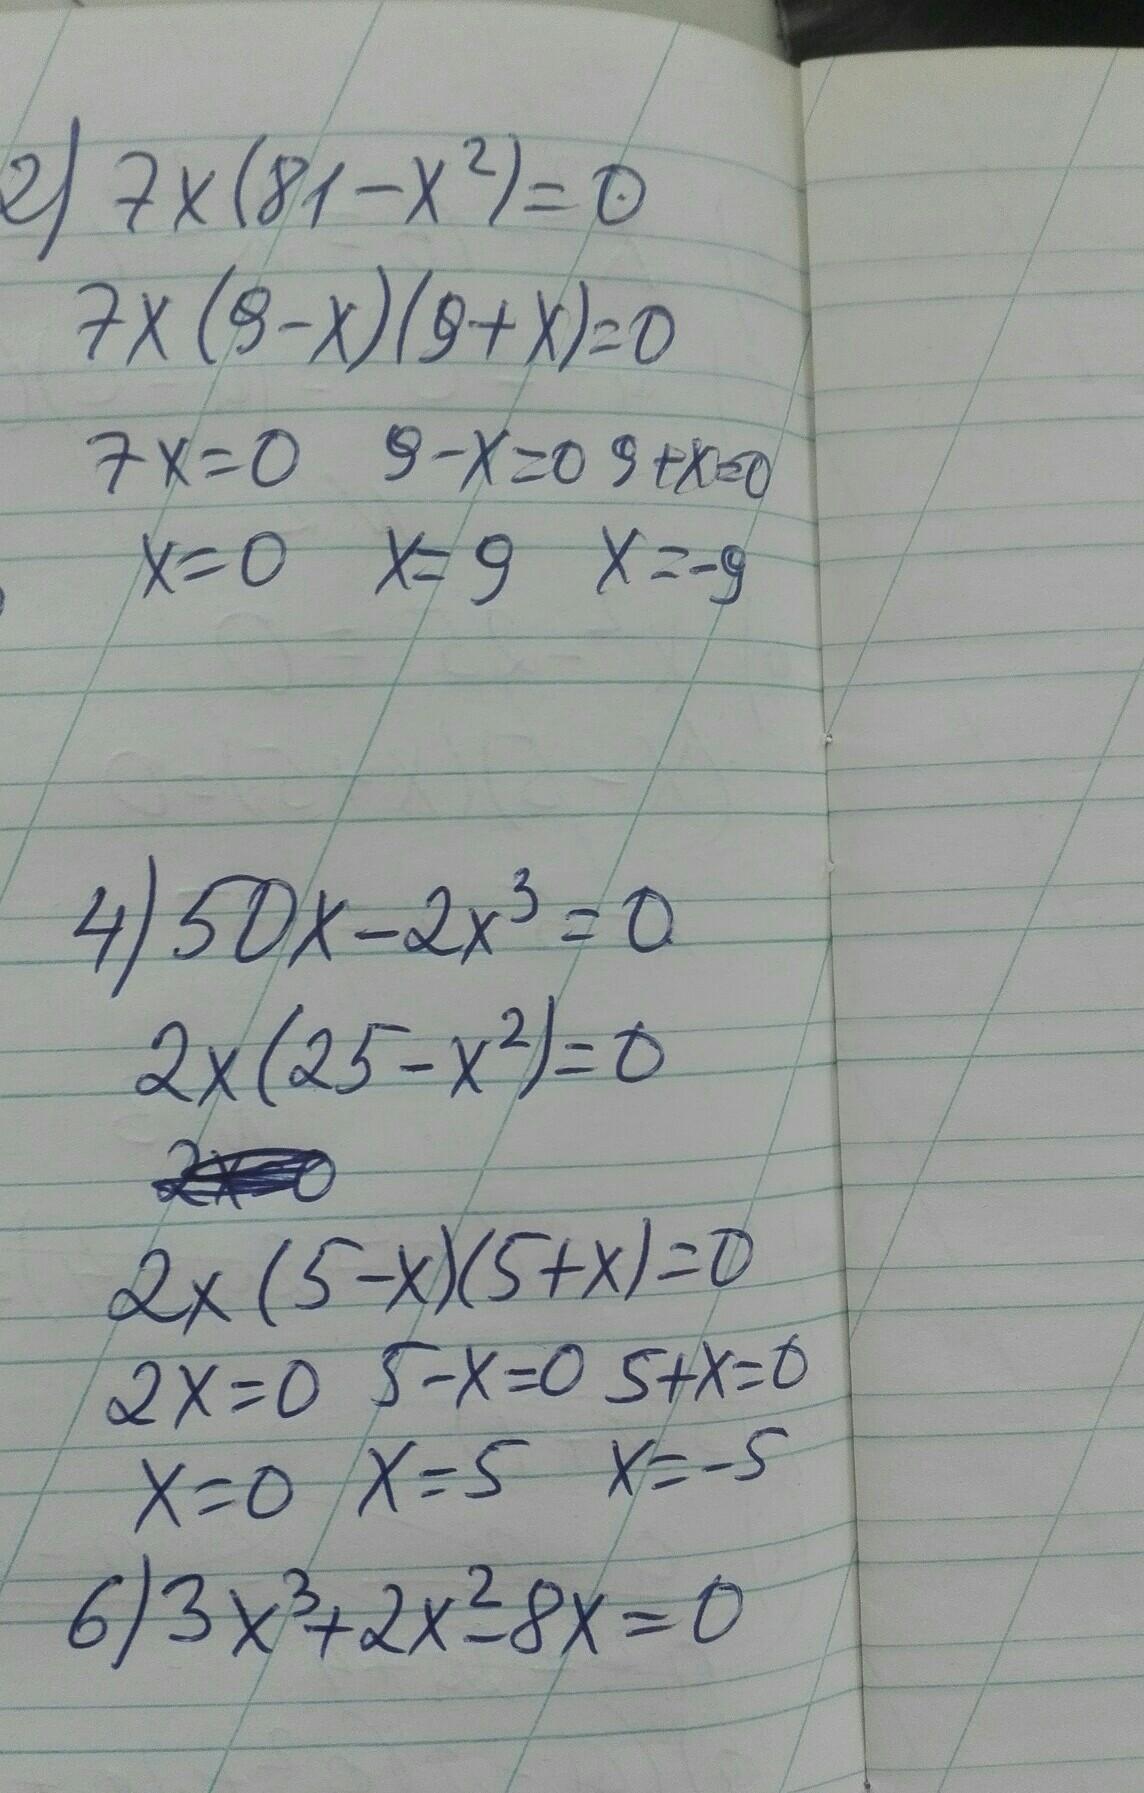 2) 7x(81-x²)=0
7x(9-x)(9+x)=0
7x=0 9-x=0 9+x=0
x=0 x=9 x=-9
4) 50x-2x³=0
2x(25-x²)=0
2x(5-x)(5+x)=0
2x=0 5-x=0 5+x=0
x=0 x=5 x=-5
6) 3x³+2x²-8x=0